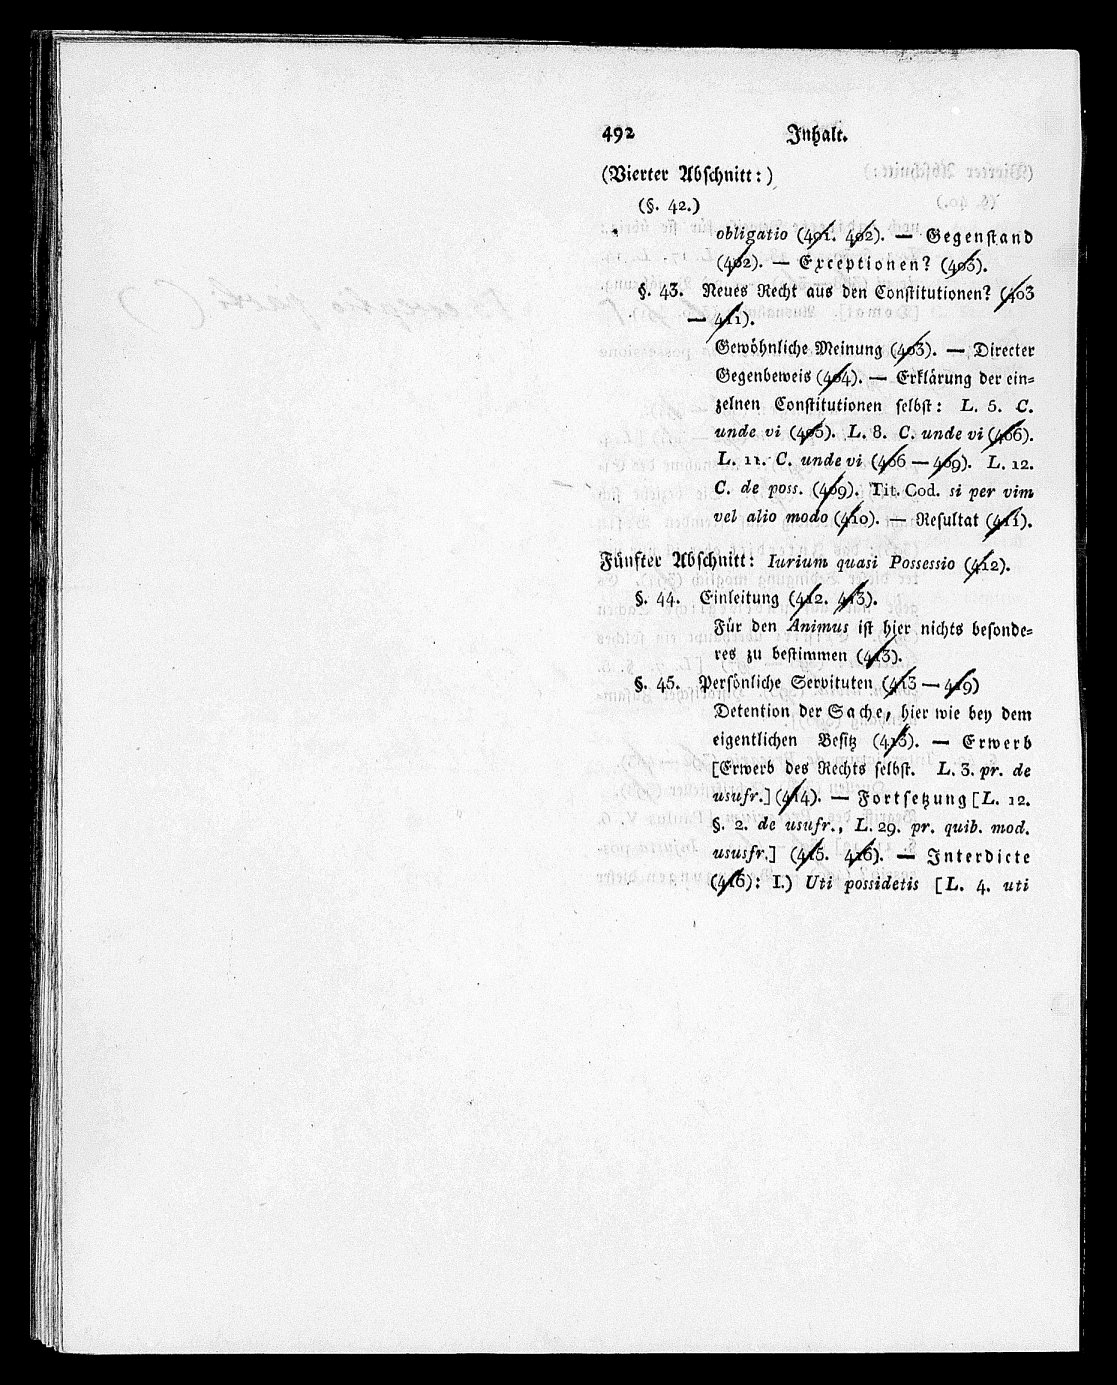 492 Inhalt.
(Vierter Abschnitt:)
(§. 42.)
obligatio (401. 402). — Gegenstand
(402). — Exceptionen? (403).
§. 43. Neues Recht aus den Constitutionen? (403
— 411).
Gewöhnliche Meinung (403). — Directer
Gegenbeweis (404). — Erklärung der ein-
zelnen Constitutionen selbst: L. 5. C.
unde vi (405). L. 8. C. unde vi (406).
L. 11. C. unde vi (406 — 409). L. 12.
C. de poss. (409). Tit. Cod. si per vim
vel alio modo (410). — Resultat (411).
Fünfter Abschnitt: Iurium quasi Possessio (412).
§. 44. Einleitung (412. 413).
Für den Animus ist hier nichts besonde-
res zu bestimmen (413).
§. 45. Persönliche Servituten (413 — 419)
Detention der Sache, hier wie bey dem
eigentlichen Besitz (413). — Erwerb
[Erwerb des Rechts selbst. L. 3. pr. de
usufr.] (414). — Fortsetzung [L. 12.
§. 2. de usufr., L. 29. pr. quib. mod.
ususfr.] (415. 416). — Interdicte
(416): I.) Uti possidetis [L. 4. uti